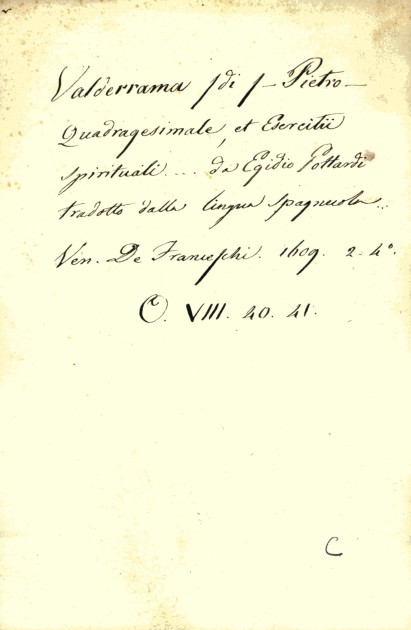 Valderrama /di /- Pietro -
Quadragesimale, et Esercitii
spirituali ... da Egidio Gottardi
tradotto dalla lingua spagnuola ..
Ven. De Franceschi. 1609. 2. 4°.
O. VIII. 40. 41.
C